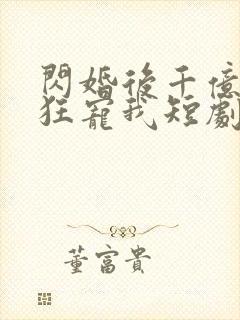 閃婚後千億
狂寵我短劇
董富貴